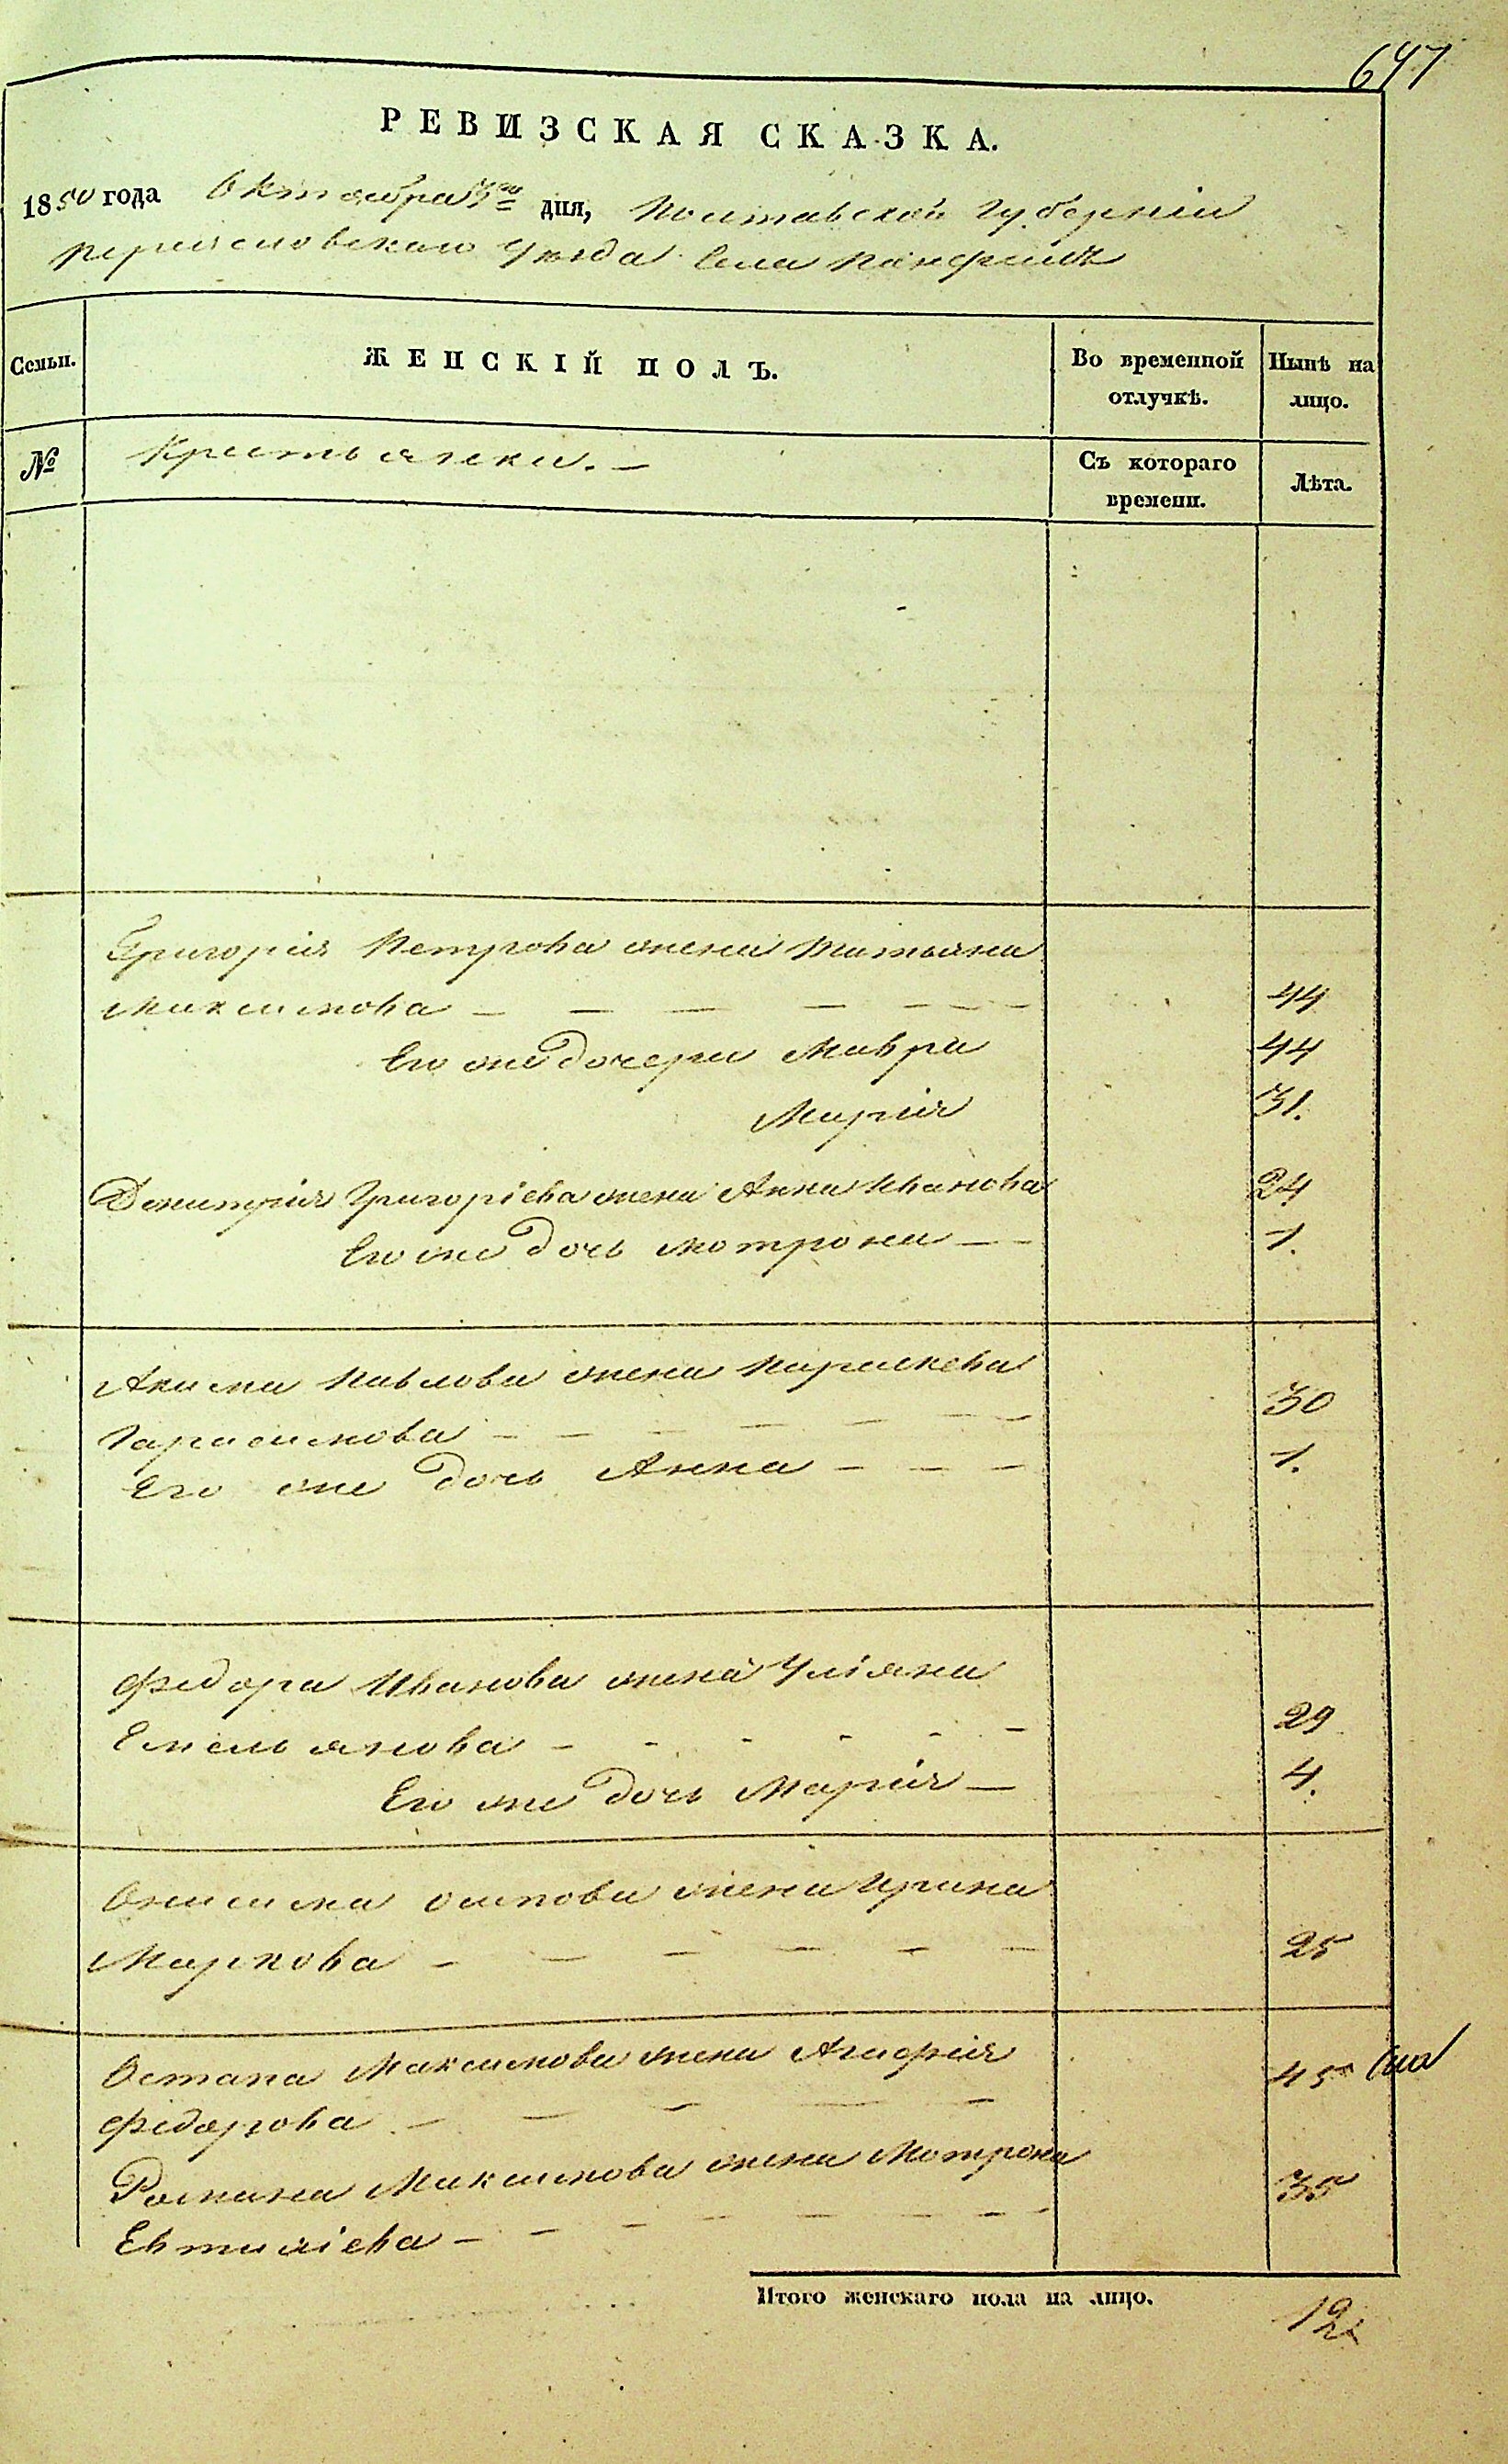 647
РЕВИЗСКАЯ СКАЗКА.
1850 года Октября 3го дня, Полтавской Губерніи
Переясловскаго Уѣзда Села Панфилъ
Семьи.
ЖЕНСКІЙ ПОЛЪ.
Во временной отлучкѣ.
Нынѣ на лицо.
№
Крестьянки. —
Съ котораго времени.
Лѣта.
Григорія Петрова жена Татьяна
Максимова — — — — — — — 44
Его же дочери Мавра 44
Марія 31.
Демитрія Григоріева жена Анна Иванова 24
Его же дочь Мотрона — — 1.
Акима Павлова жена Параскева
Гарасимова — — — — — — — 30
Его же дочь Анна — — — 1.
Федора Иванова жена Уліяна
Емельянова — - - - - — 29
Его же дочь Марія — 4.
Онисима Осипова жена Ирина
Маркова — — — — — — 25
Остапа Максимова жена Агафія 45
Федорова — — — — —
Романа Максимова жена Мотрона 35
Евтихіева — — — — — — —
Итого женскаго пола на лицо.
12